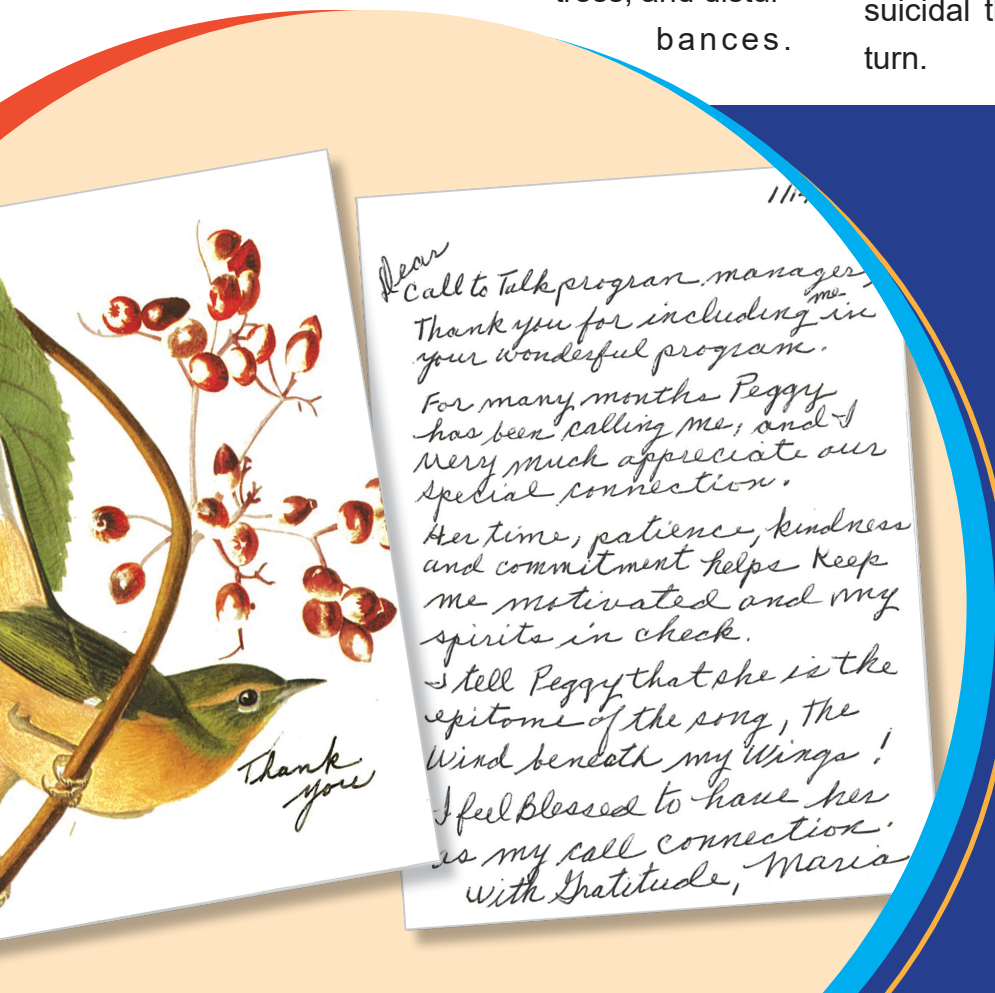 bances.
suicidal
turn.
Thank
you
Dear
Call to Talk program manager,
Thank you for including me in
your wonderful program.
For many months Peggy
has been calling me, and I
very much appreciate our
special connection.
Her time, patience, kindness
and commitment helps Keep
me motivated and my
spirits in check.
I tell Peggy that she is the
epitome of the song, The
Wind beneath my Wings!
I feel Blessed to have her
as my call connection.
With Gratitude, Maria